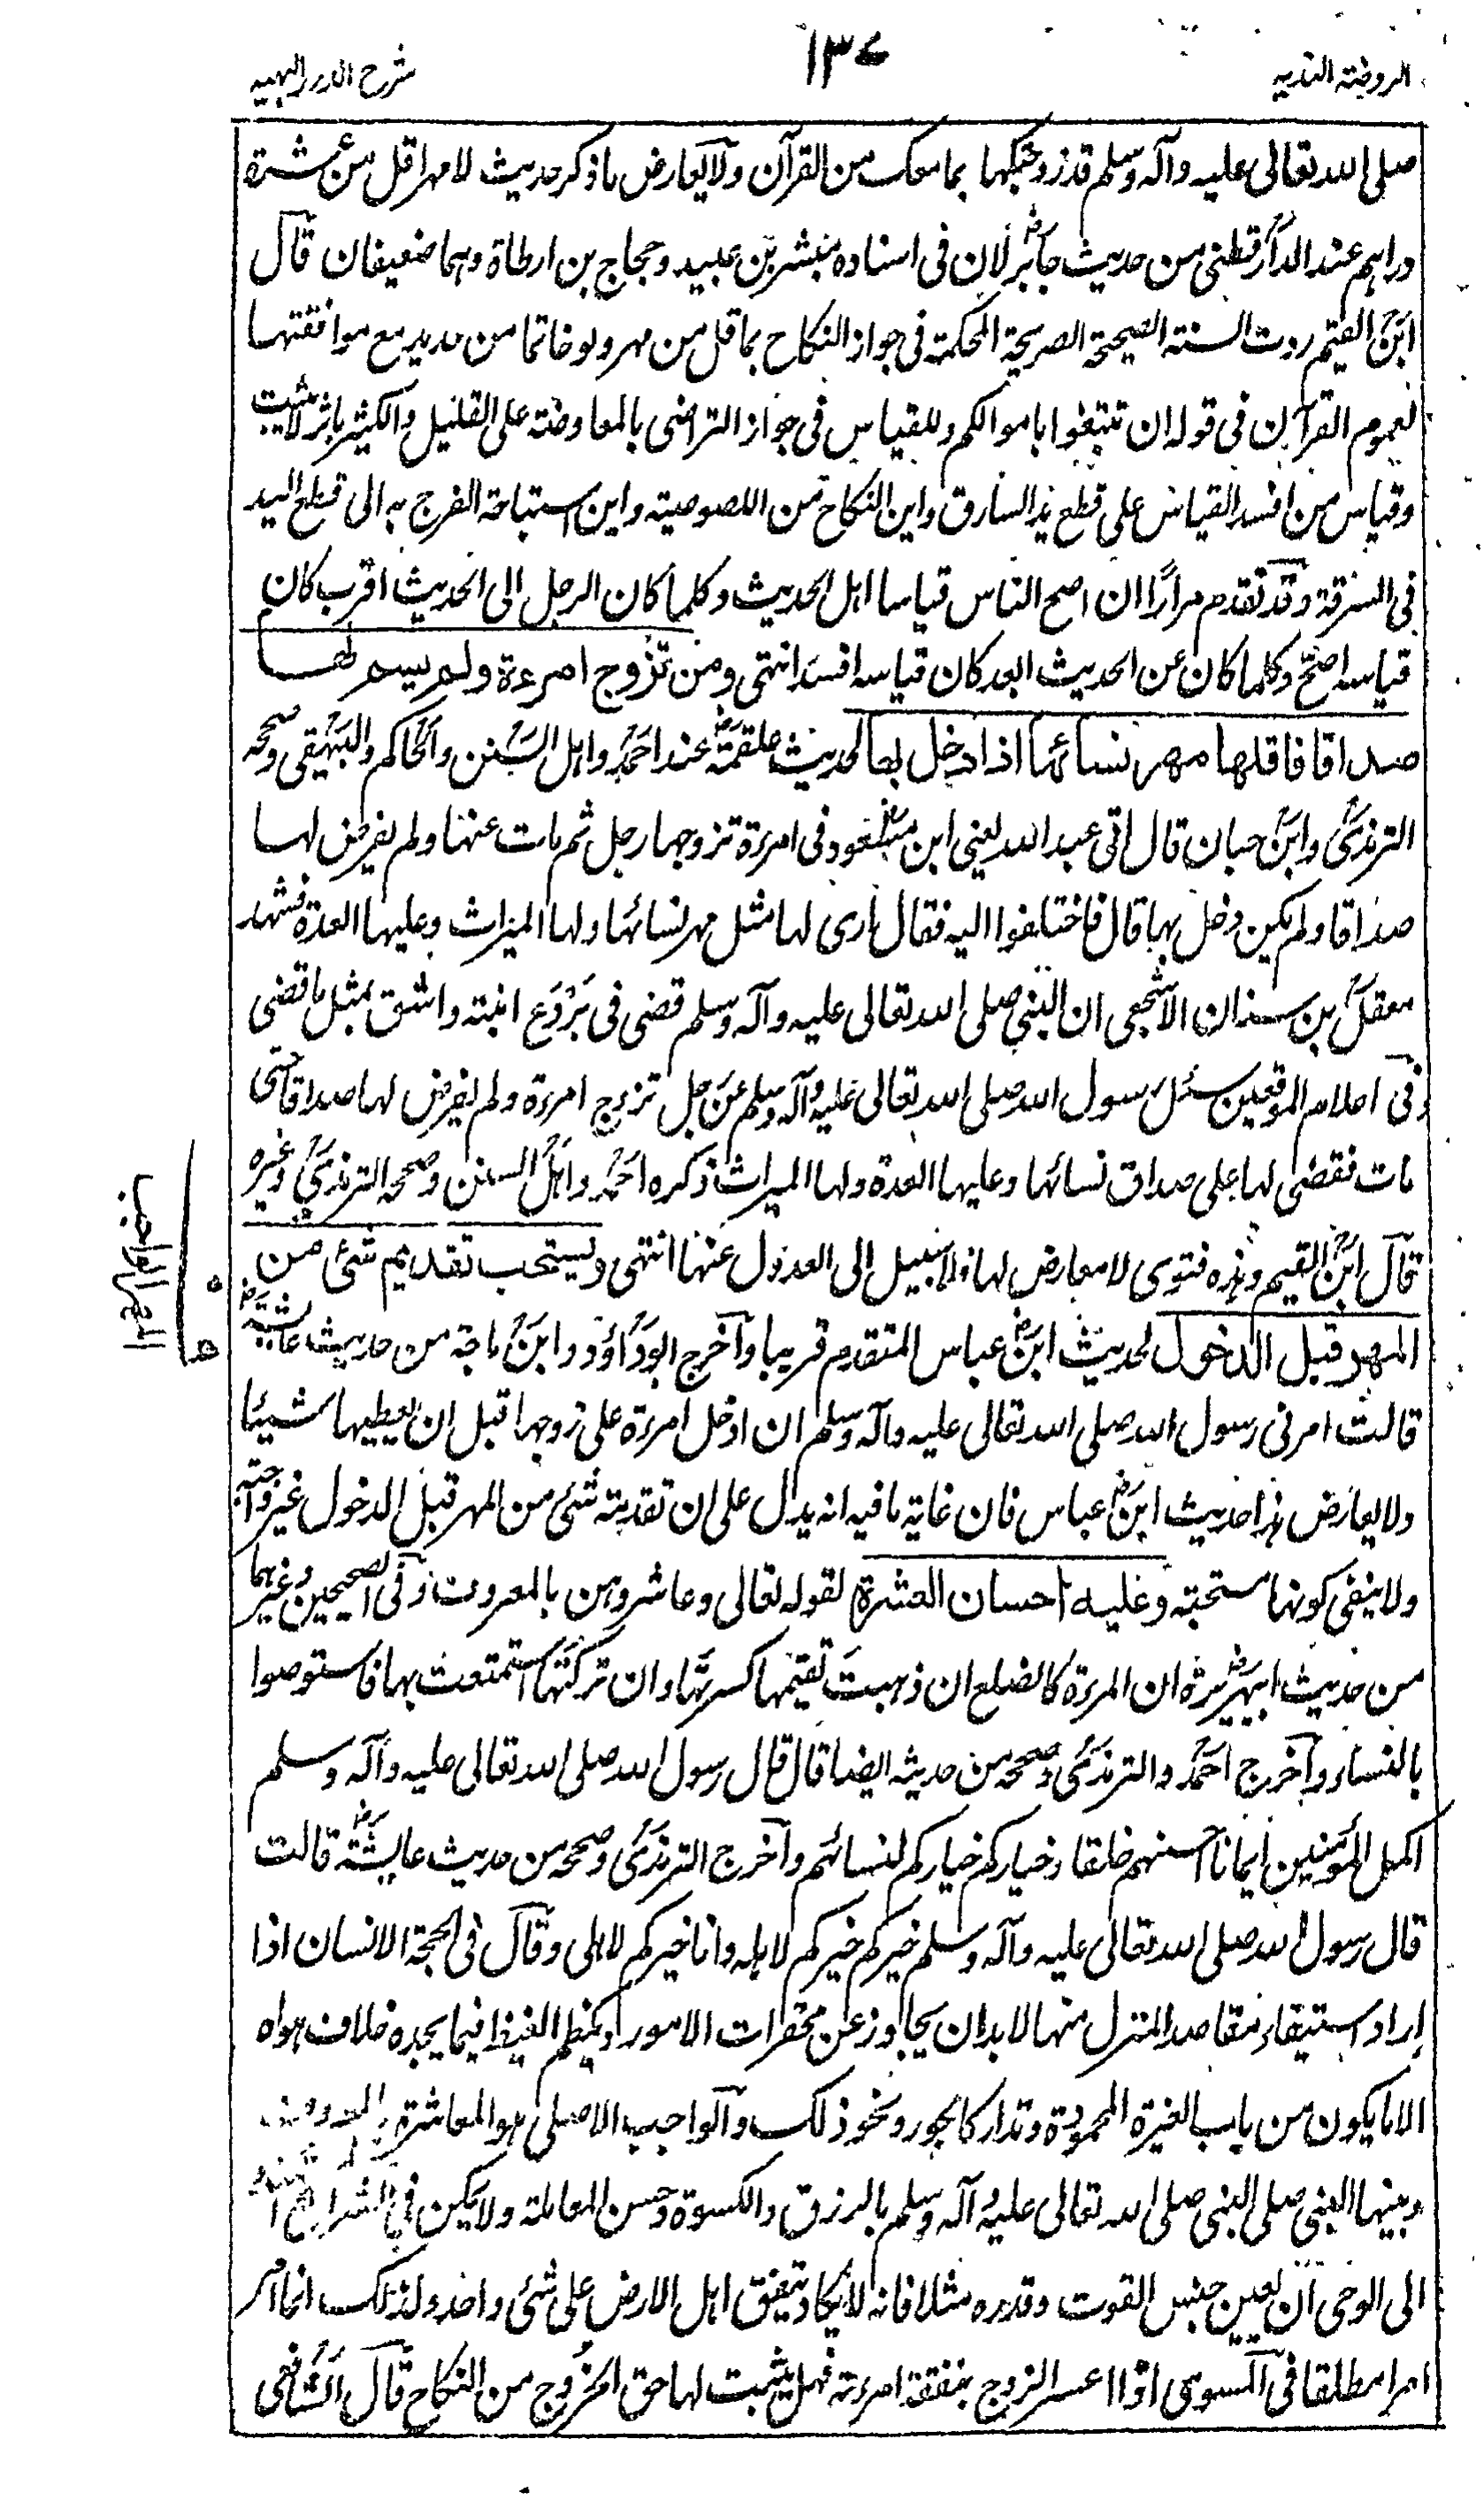 الروضة الندية
١٣٤
شرح الدرر البهية
صلى الله تعالى عليه وآله وسلم قد زوجتكها بما معك من القرآن ولا يعارض ما ذكر حديث لا مهر اقل من عشرة
دراهم عند الدارقطني من حديث جابر لان في اسناده مبشر بن عبيد وحجاج بن ارطاة وهما ضعيفان قال
ابن القيم ردت السنة الصحيحة الصريحة المحكمة في جواز النكاح بما قل من مهر ولو خاتما من حديد مع موافقتها
لعموم القرآن في قوله ان تبتغوا باموالكم وللقياس في جواز التراضي بالمعاوضة على القليل والكثير باثر لا يثبت
وقياس من افسد القياس على قطع يد السارق واين النكاح من اللصوصية واين استباحة الفرج به الى قطع اليد
في السرقة وقد تقدم مرارا ان اصح الناس قياسا اهل الحديث وكلما كان الرجل الى الحديث اقرب كان
قياسه اصح وكلما كان عن الحديث ابعد كان قياسه افسد انتهى ومن تزوج امرءة ولم يسم لها
صداقا فاقلها مهر نسائها اذا دخل بها لحديث علقمة عند احمد واهل السنن والحاكم والبيهقي وصححه
الترمذي وابن حبان قال اتى عبد الله يعني ابن مسعود في امرءة تزوجها رجل ثم مات عنها ولم يفرض لها
صداقا ولم يكن دخل بها قال فاختلفوا اليه فقال ارى لها مثل مهر نسائها ولها الميراث وعليها العدة فشهد
معقل بن سنان الاشجعي ان النبي صلى الله تعالى عليه وآله وسلم قضى في بروع ابنة واشق بمثل ما قضى
وفي اعلام الموقعين سئل رسول الله صلى الله تعالى عليه وآله وسلم عن رجل تزوج امرءة ولم يفرض لها صداقا حتى
مات فقضى لها على صداق نسائها وعليها العدة ولها الميراث ذكره احمد واهل السنن وصححه الترمذي وغيره
قال ابن القيم وهذه فتوى لا معارض لها ولا سبيل الى العدول عنها انتهى ويستحب تقديم شئ من
المهر قبل الدخول لحديث ابن عباس المتقدم قريبا وآخرج ابوداؤد وابن ماجة من حديث عائشة
قالت امرني رسول الله صلى الله تعالى عليه وآله وسلم ان ادخل امرءة على زوجها قبل ان يعطيها شيئا
ولا يعارض هذا حديث ابن عباس فان غاية ما فيه انه يدل على ان تقدمة شئ من المهر قبل الدخول غير واجبة
ولا ينفي كونها مستحبة وعليه احسان العشرة لقوله تعالى وعاشروهن بالمعروف وفي الصحيحين وغيرهما
من حديث ابي هريرة ان المرءة كالضلع ان ذهبت تقيمها كسرتها وان تركتها استمتعت بها فاستوصوا
بالنساء وآخرج احمد والترمذي وصححه من حديثه ايضا قال قال رسول الله صلى الله تعالى عليه وآله وسلم
اكمل المؤمنين ايمانا احسنهم خلقا وخياركم خياركم لنسائهم وآخرج الترمذي وصححه من حديث عايشة قالت
قال رسول الله صلى الله تعالى عليه وآله وسلم خيركم خيركم لاهله وانا خيركم لاهلي وقال في الحجة الانسان اذا
اراد استيفاء مقاصد المنزل منها لا بد ان يجاوز عن محقرات الامور ويكظم الغيظ فيما يجده خلاف هواه
الا ما يكون من باب الغيرة المحمودة وتدارك الجور ونحو ذلك والواجب الاصلي هو المعاشرة بالمعروف
وبينها النبي صلى النبي صلى الله تعالى عليه وآله وسلم بالرزق والكسوة وحسن المعاملة ولا يمكن في الشرائع المستندة
الى الوحي ان يعين جنس القوت وقدره مثلا فانه لا يكاد يتفق اهل الارض على شئ واحد ولذلك انما امر
امرا مطلقا في المسوى اذا اعسر الزوج بنفقة امرءته فهل يثبت لها حق الخروج من النكاح قال الشافعي